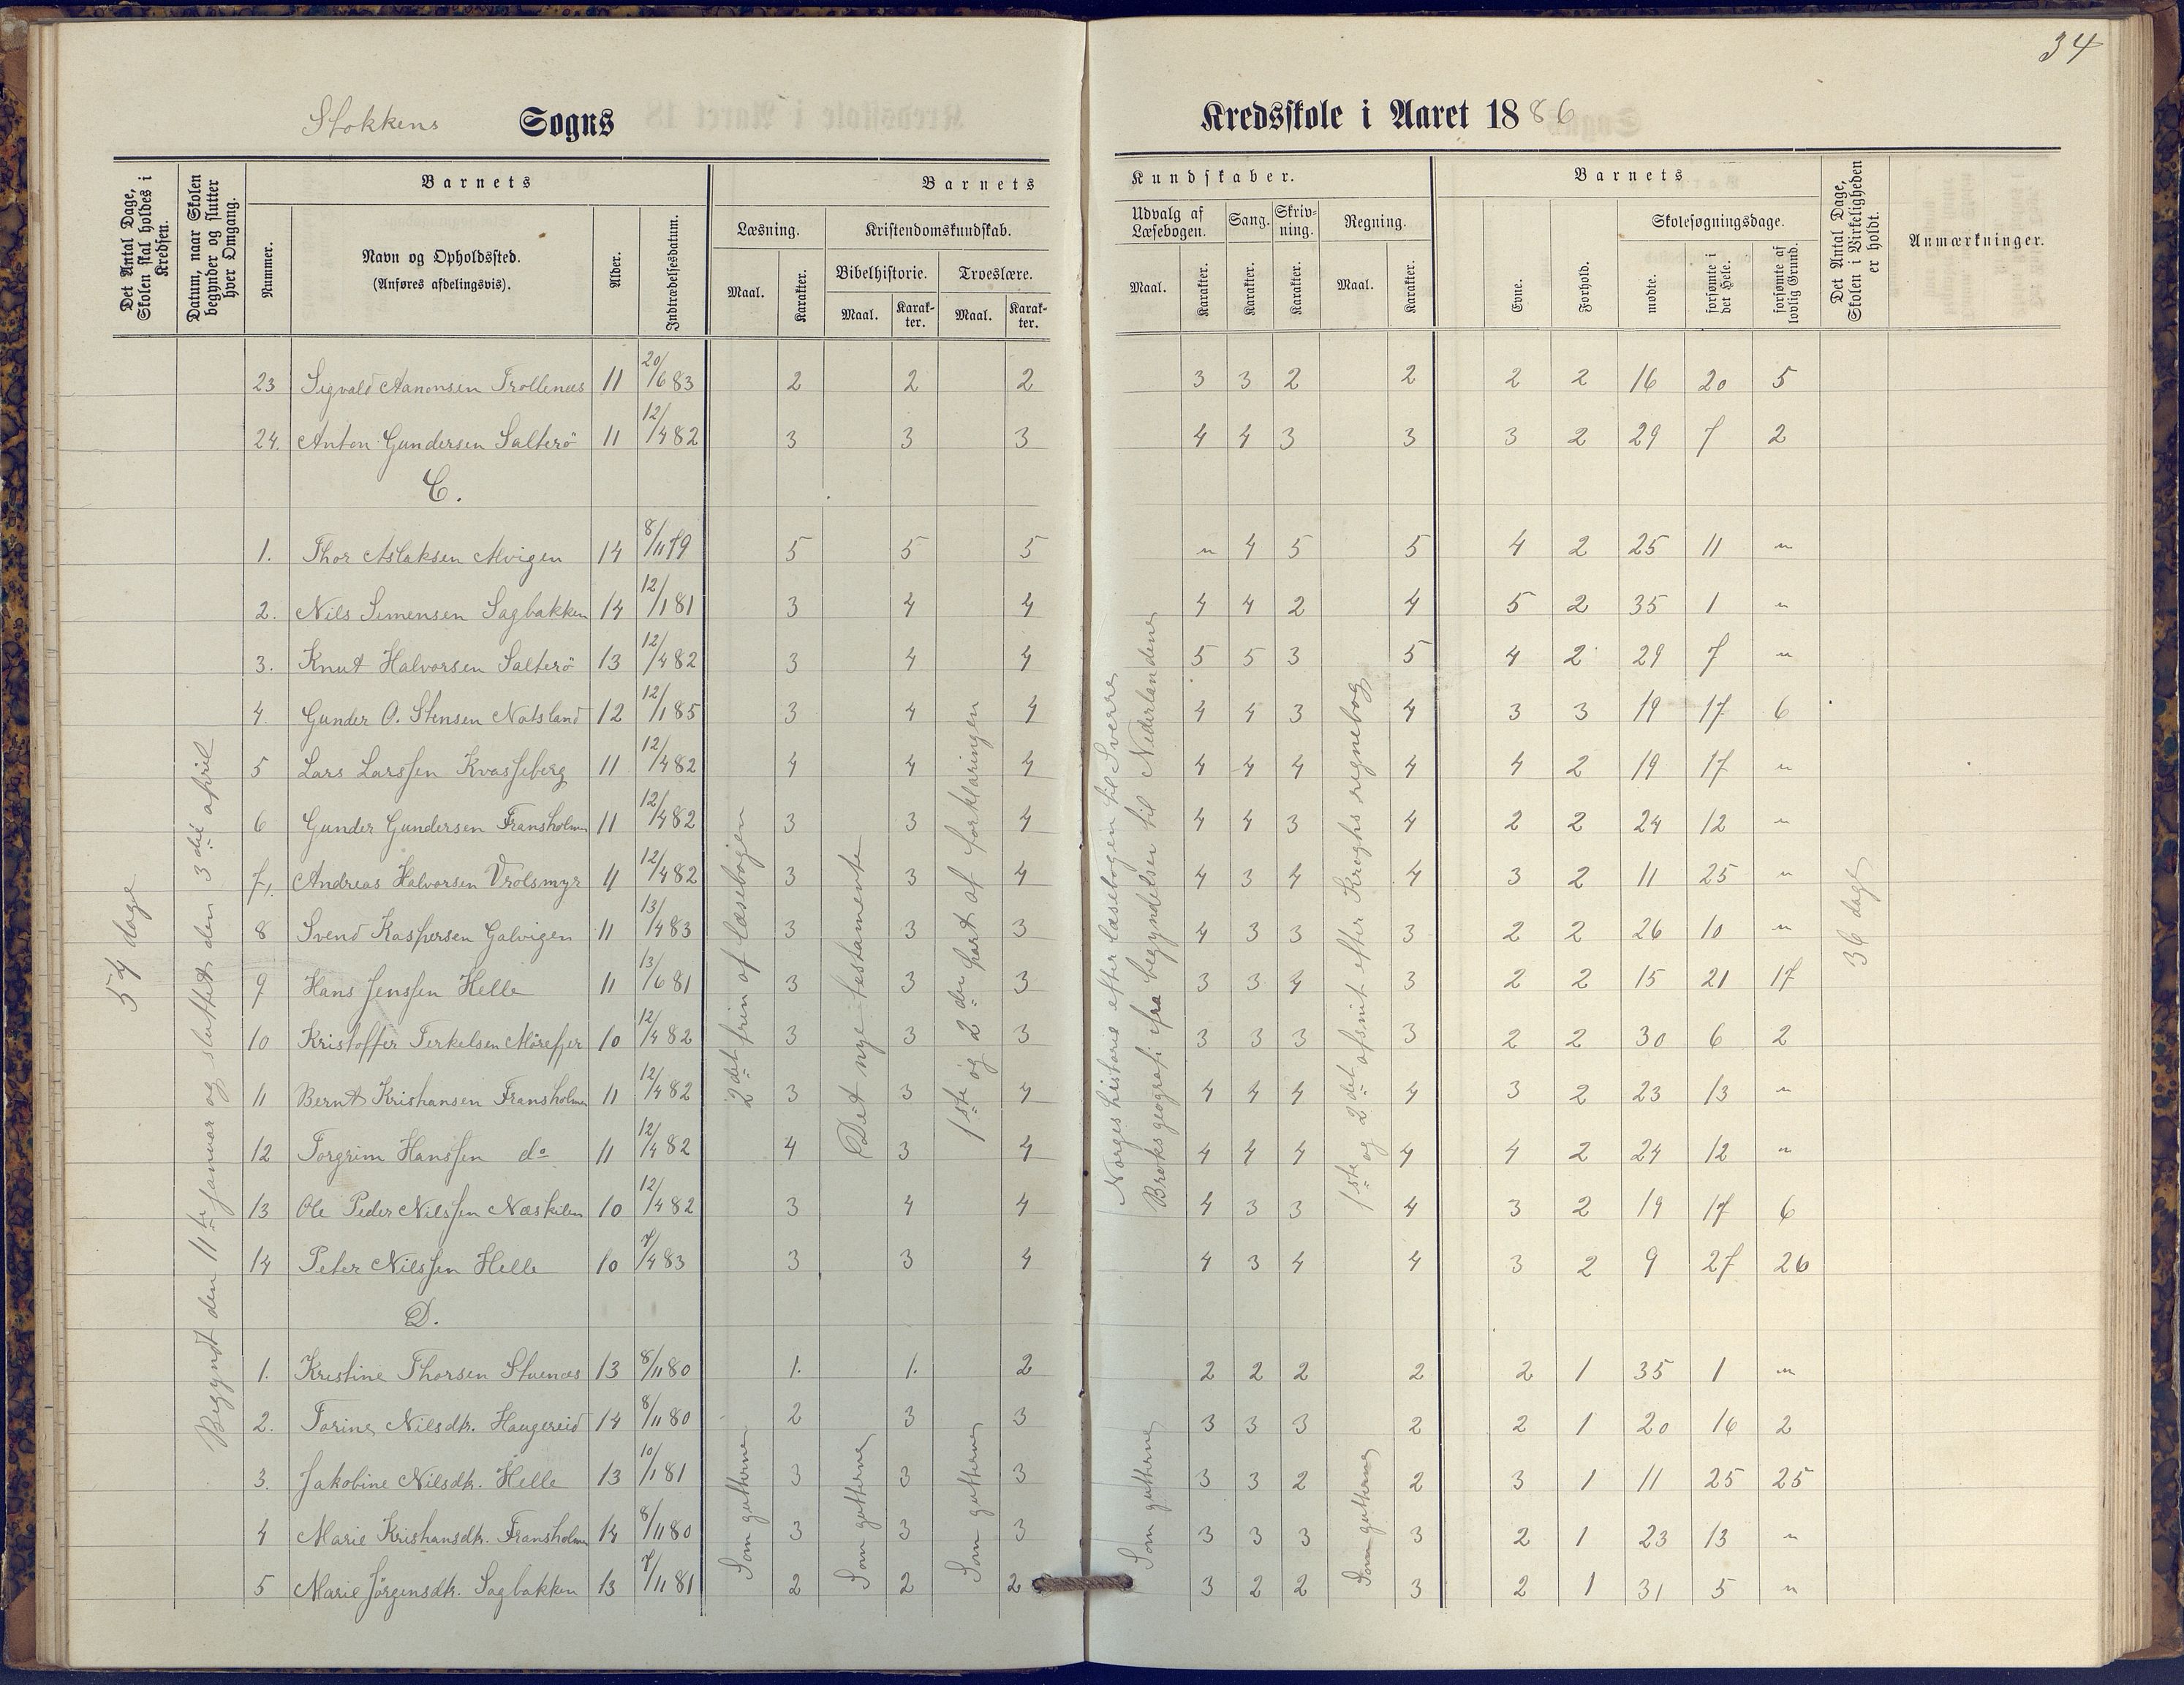 34
Stokkens Sogns Kredsskole i Aaret 1886
Det Antal Dage, Skolen skal holdes i Kredsen.
Datum, naar Skolen begynder og slutter hver Omgang.
Barnets
Nummer.
Navn og Opholdssted. (Anføres afdelingsvis).
Alder.
Indtrædelsesdatum.
Barnets Kundskaber.
Læsning.
Maal. Karakter.
Kristendomskundskab.
Bibelhistorie. Troeslære.
Maal. Karakter. Maal. Karakter.
Udvalg af Læsebogen. Sang. Skrivning. Regning.
Maal. Karakter. Karakter. Karakter. Maal. Karakter.
Barnets
Evne. Forhold.
Skolesøgningsdage.
mødte. forsømte i det Hele. forsømte af lovlig Grund.
Det Antal Dage, Skolen i Virkeligheden er holdt.
Anmærkninger.
23 Sigvald Aanonsen Trollenæs 11 20/6 83 2 2 2 3 3 2 2 2 2 16 20 5
24. Anton Gundersen Salterö 11 12/4 82 3 3 3 4 4 3 3 3 2 29 7 2
C.
1. Thor Aslaksen Alvigen 14 8/11 79 5 5 5 " 4 5 5 4 2 25 11 "
2. Nils Simensen Sagbakken 14 12/1 81 3 4 4 4 4 2 4 5 2 35 1 "
3. Knut Halvorsen Salterö 13 12/4 82 3 4 4 5 5 3 5 4 2 29 7 "
4. Gunder O. Stensen Natsland 12 12/1 85 3 4 4 4 4 3 4 3 3 19 17 6
5 Lars Larssen Kvasseberg 11 12/4 82 4 4 4 4 4 4 4 4 2 19 17 "
6 Gunder Gundersen Fransholmen 11 12/4 82 3 3 4 4 4 3 4 2 2 24 12 "
7, Andreas Halvorsen Vrolsmyr 11 12/4 82 3 3 4 4 3 4 4 3 2 11 25 "
8 Svend Kaspersen Galvigen 11 13/4 83 3 3 3 4 3 3 3 2 2 26 10 "
9 Hans Jenssen Helle 11 13/6 81 3 3 3 3 3 4 3 2 2 15 21 17
10 Kristoffer Terkelsen Mörefjer 10 12/4 82 3 3 3 3 3 3 3 2 2 30 6 2
11 Bernt Kristiansen Fransholmen 11 12/4 82 3 3 4 4 4 4 4 3 2 23 13 "
12 Torgrim Hanssen do 11 12/4 82 4 3 4 4 4 4 4 4 2 24 12 "
13 Ole Peder Nilssen Næskilen 10 12/4 82 3 4 4 4 3 3 4 3 2 19 17 6
14 Peter Nilssen Helle 10 7/4 83 3 3 4 4 3 4 4 3 2 9 27 26
D.
1. Kristine Thorsen Stuenæs 13 8/11 80 1. 1. 2 2 2 2 2 2 1 35 1 "
2. Torine Nilsdtr. Haugereid 14 8/11 80 2 3 3 3 3 3 2 2 1 20 16 2
3. Jakobine Nilsdtr. Helle 13 10/1 81 3 3 3 3 3 2 2 3 1 11 25 25
4 Marie Kristiansdtr. Fransholmen 14 8/11 80 3 3 3 3 3 3 3 2 1 23 13 "
5 Marie Jörgensdtr. Sagbakken 13 7/11 81 2 2 2 3 2 2 3 2 1 31 5 "
54 dage
Begyndt den 11te januar og sluttet den 3die april
2det trin af læsebogen
Det nye testamente
1ste og 2den part af forklaringen
Norges historie efter læsebogen til Sverre
Broks geografi ifra begyndelsen til Nederlandene
1ste og 2det afsnit efter Kroghs regnebog
36 dage
Som gutterne
Som gutterne
Som gutterne
Som gutterne
Som gutterne